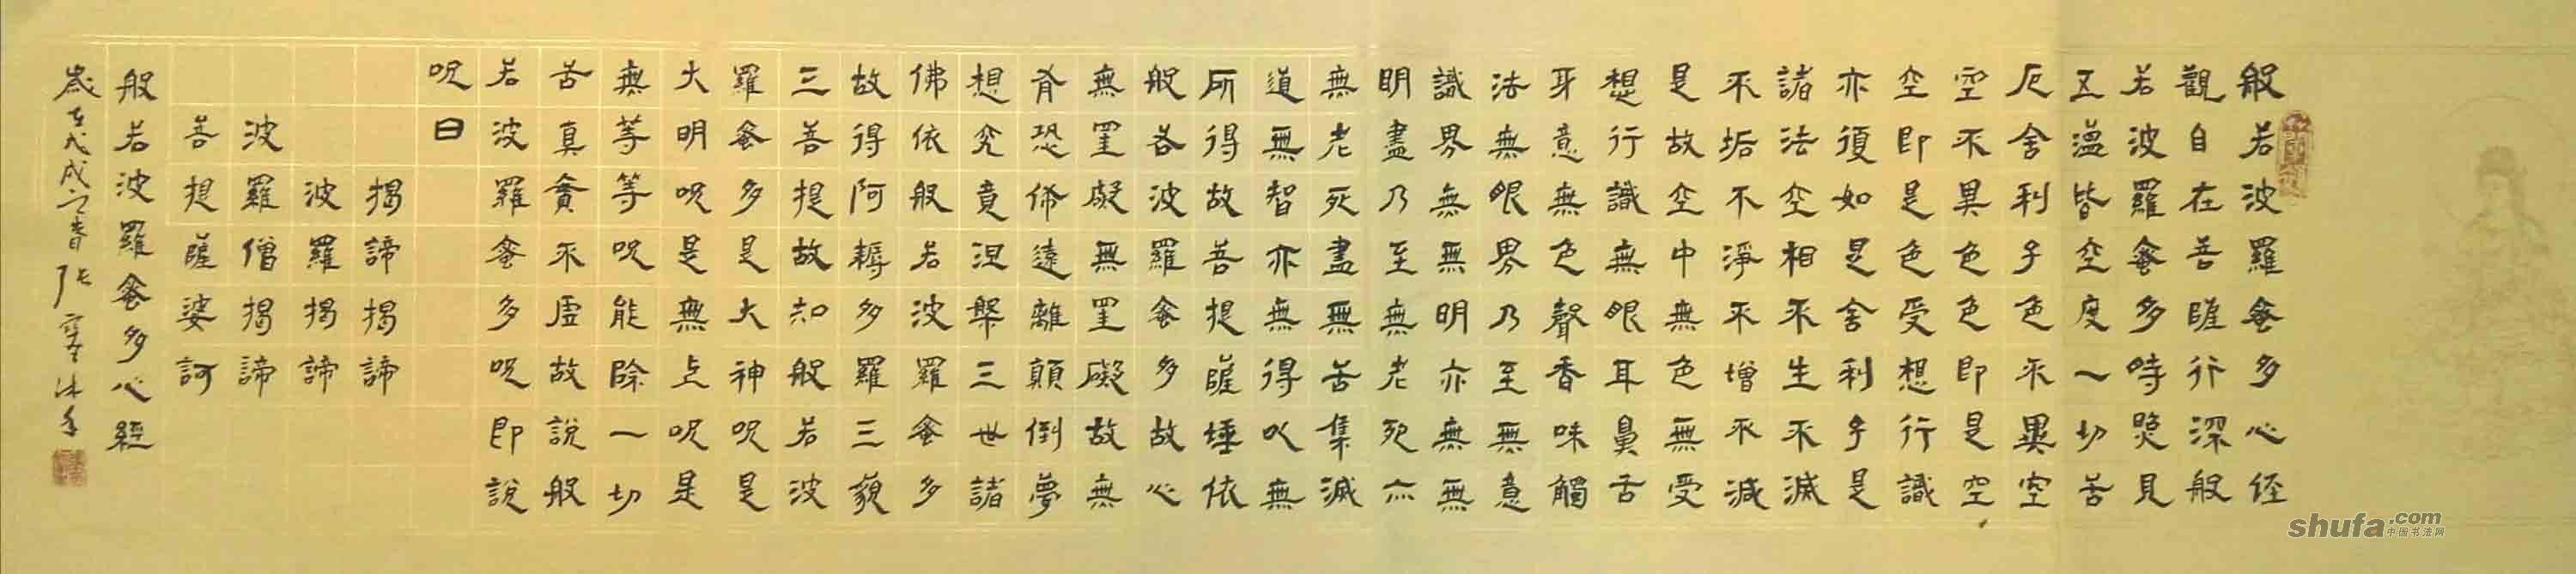 般若波羅蜜多心經
觀自在菩薩行深般
若波羅蜜多時照見
五蘊皆空度一切苦
厄舍利子色不異空
空不異色色即是空
空即是色受想行識
亦復如是舍利子是
諸法空相不生不滅
不垢不淨不增不減
是故空中無色無受
想行識無眼耳鼻舌
身意無色聲香味觸
法無眼界乃至無意
識界無無明亦無無
明盡乃至無老死亦
無老死盡無苦集滅
道無智亦無得以無
所得故菩提薩埵依
般若波羅蜜多故心
無罣礙無罣礙故無
有恐怖遠離顛倒夢
想究竟涅槃三世諸
佛依般若波羅蜜多
故得阿耨多羅三藐
三菩提故知般若波
羅蜜多是大神呪是
大明呪是無上呪是
無等等呪能除一切
苦真實不虛故說般
若波羅蜜多呪即說
呪曰
揭諦揭諦
波羅揭諦
波羅僧揭諦
菩提薩婆訶
般若波羅蜜多心經
歲在戊戌之春張寒冰
shufa.com
中国书法网